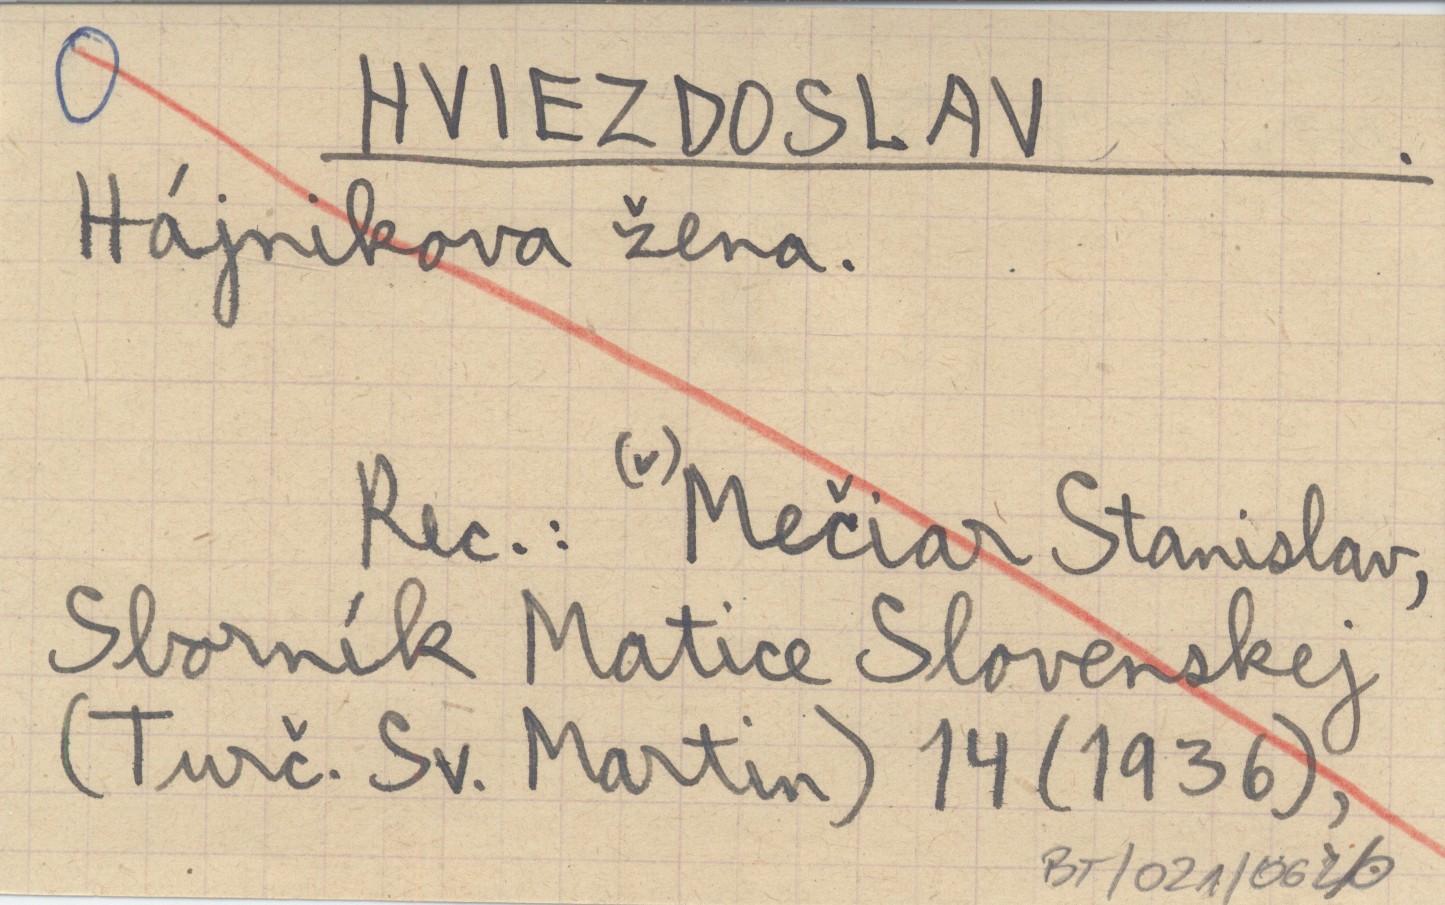 HVIEZDOSLAV .
Hájnikova žena.
Rec.: (v) Mečiar Stanislav,
Sborník Matice Slovenskej
(Turč. Sv. Martin) 14 (1936),
BT/021/